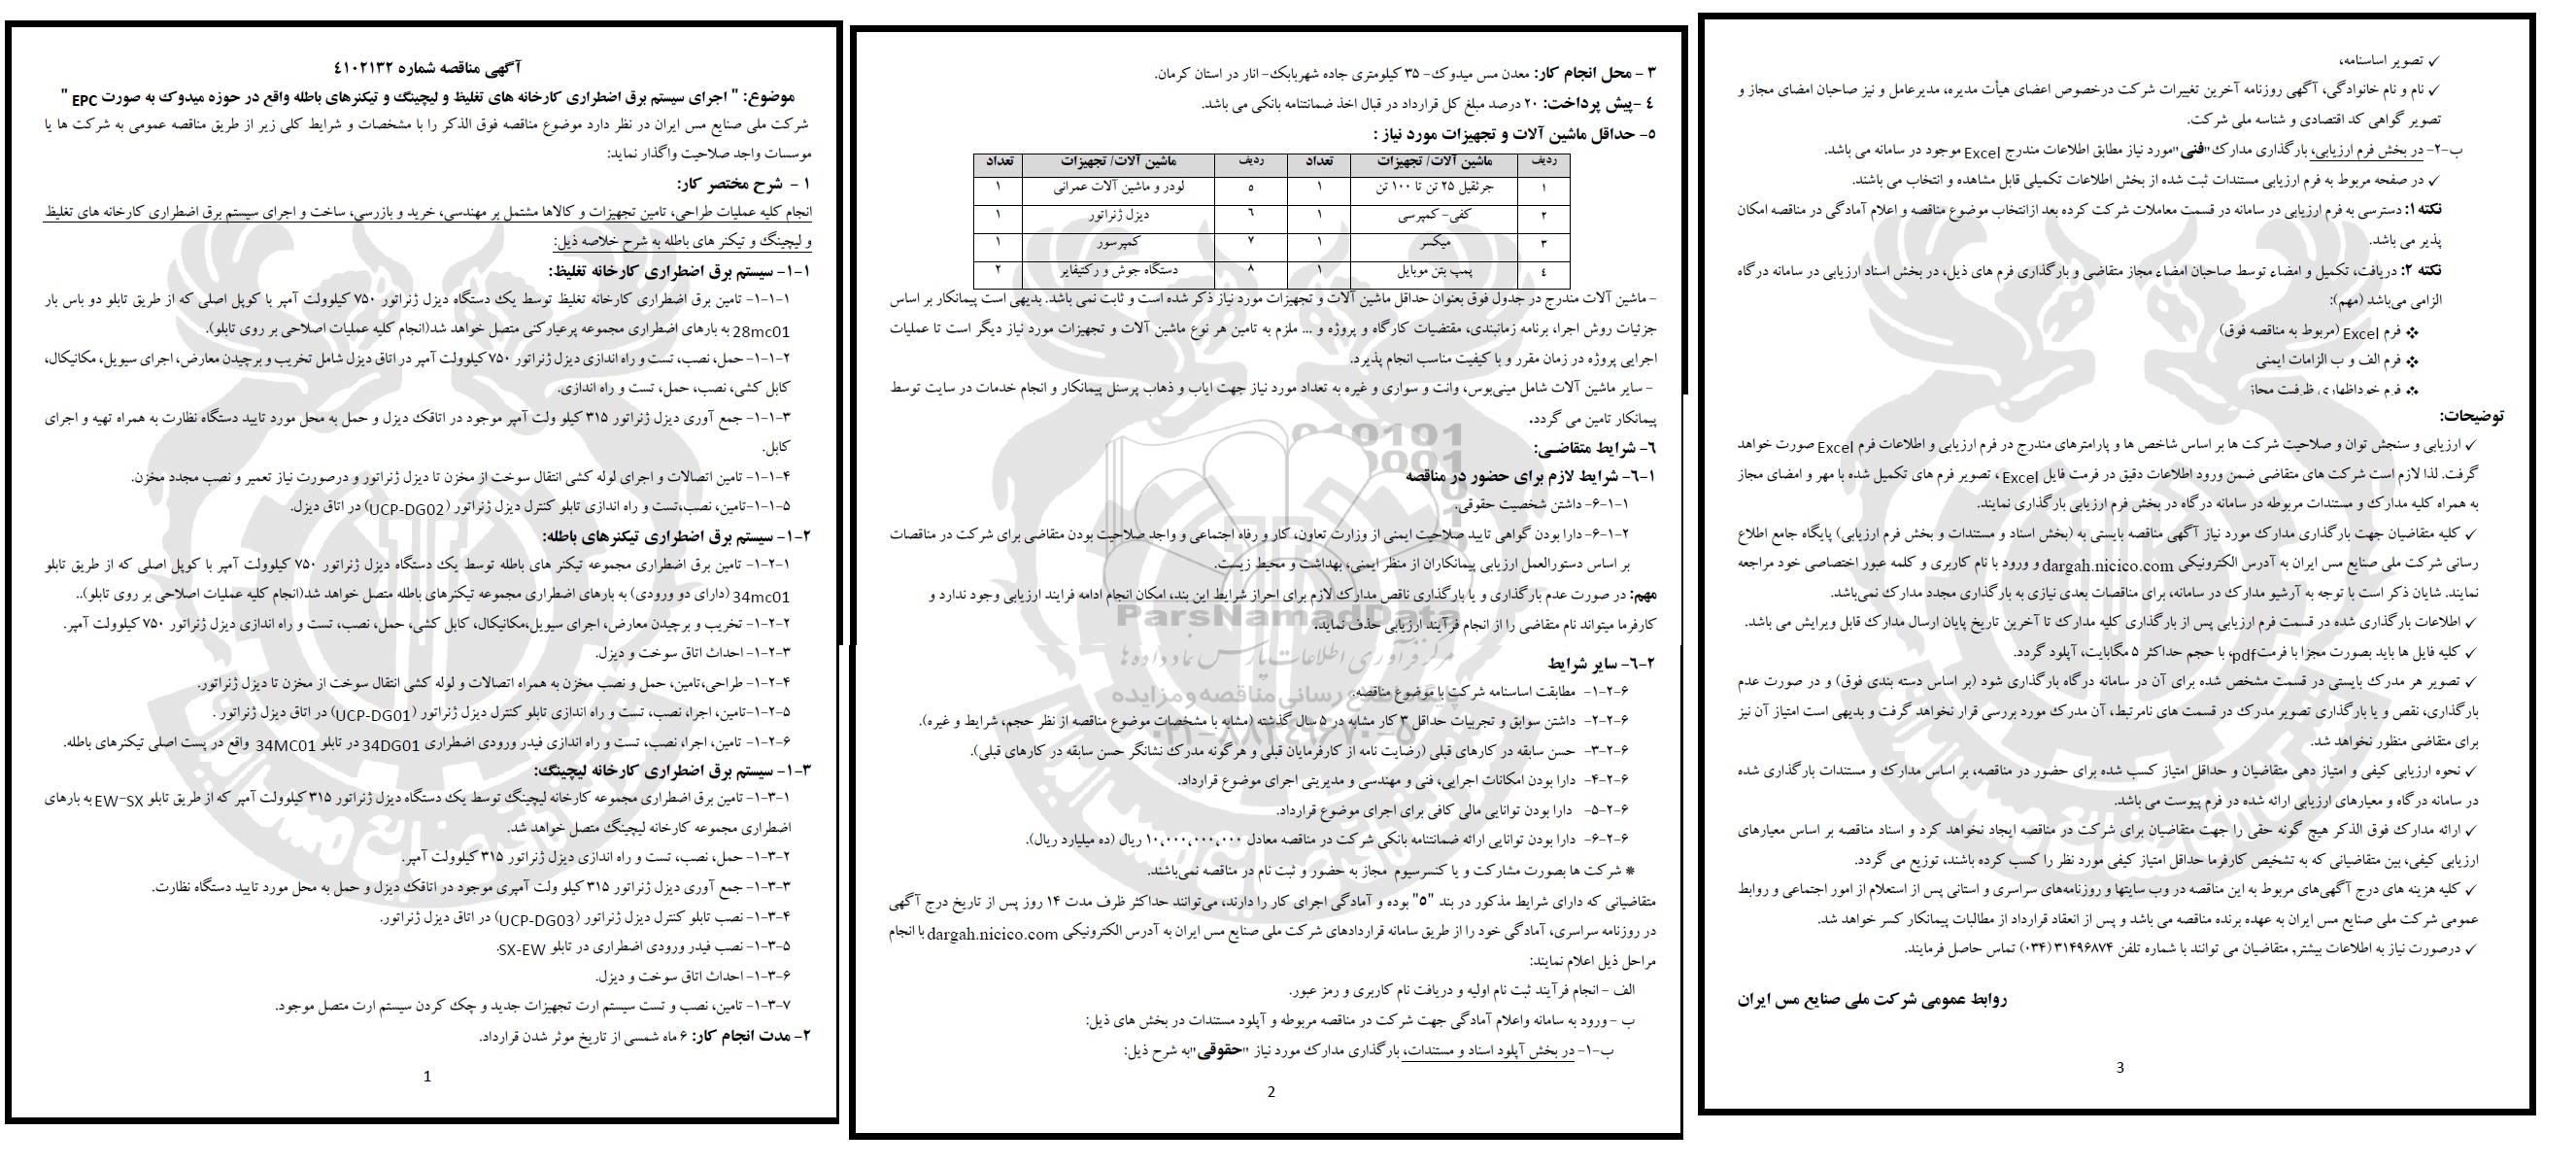 آگهی مناقصه شماره ٤١٠٢١٣٢
موضوع: " اجرای سیستم برق اضطراری کارخانه های تغلیظ و لیچینگ و تیکنرهای باطله واقع در حوزه میدوک به صورت EPC "
شرکت ملی صنایع مس ایران در نظر دارد موضوع مناقصه فوق الذکر را با مشخصات و شرایط کلی زیر از طریق مناقصه عمومی به شرکت ها یا
موسسات واجد صلاحیت واگذار نماید:
۱ - شرح مختصر کار:
انجام کلیه عملیات طراحی، تامین تجهیزات و کالاها مشتمل بر مهندسی، خرید و بازرسی، ساخت و اجرای سیستم برق اضطراری کارخانه های تغلیظ
و لیچینگ و تیکنر های باطله به شرح خلاصه ذیل:
۱-۱- سیستم برق اضطراری کارخانه تغلیظ:
۱-۱-۱- تامین برق اضطراری کارخانه تغلیظ توسط یک دستگاه دیزل ژنراتور ۷۵۰ کیلوولت آمپر با کوپل اصلی که از طریق تابلو دو باس بار
28mc01 به بارهای اضطراری مجموعه پرعیارکنی متصل خواهد شد(انجام کلیه عملیات اصلاحی بر روی تابلو).
۱-۱-۲- حمل، نصب، تست و راه اندازی دیزل ژنراتور ۷۵۰ کیلوولت آمپر در اتاق دیزل شامل تخریب و برچیدن معارض، اجرای سیویل، مکانیکال،
کابل کشی، نصب، حمل، تست و راه اندازی.
۱-۱-۳- جمع آوری دیزل ژنراتور ۳۱۵ کیلو ولت آمپر موجود در اتاقک دیزل و حمل به محل مورد تایید دستگاه نظارت به همراه تهیه و اجرای
کابل.
۱-۱-۴- تامین اتصالات و اجرای لوله کشی انتقال سوخت از مخزن تا دیزل ژنراتور و درصورت نیاز تعمیر و نصب مجدد مخزن.
۱-۱-۵-تامین، نصب،تست و راه اندازی تابلو کنترل دیزل ژنراتور (UCP-DG02) در اتاق دیزل.
۱-۲- سیستم برق اضطراری تیکنرهای باطله:
۱-۲-۱- تامین برق اضطراری مجموعه تیکنر های باطله توسط یک دستگاه دیزل ژنراتور ۷۵۰ کیلوولت آمپر با کوپل اصلی که از طریق تابلو
34mc01 (دارای دو ورودی) به بارهای اضطراری مجموعه تیکنرهای باطله متصل خواهد شد(انجام کلیه عملیات اصلاحی بر روی تابلو)..
۱-۲-۲- تخریب و برچیدن معارض، اجرای سیویل،مکانیکال، کابل کشی، حمل، نصب، تست و راه اندازی دیزل ژنراتور ۷۵۰ کیلوولت آمپر.
۱-۲-۳- احداث اتاق سوخت و دیزل.
۱-۲-۴- طراحی،تامین، حمل و نصب مخزن به همراه اتصالات و لوله کشی انتقال سوخت از مخزن تا دیزل ژنراتور.
۱-۲-۵-تامین، اجرا، نصب، تست و راه اندازی تابلو کنترل دیزل ژنراتور (UCP-DG01) در اتاق دیزل ژنراتور .
۱-۲-۶- تامین، اجرا، نصب، تست و راه اندازی فیدر ورودی اضطراری 34DG01 در تابلو 34MC01 واقع در پست اصلی تیکنرهای باطله.
۱-۳- سیستم برق اضطراری کارخانه لیچینگ:
۱-۳-۱- تامین برق اضطراری مجموعه کارخانه لیچینگ توسط یک دستگاه دیزل ژنراتور ۳۱۵ کیلوولت آمپر که از طریق تابلو EW-SX به بارهای
اضطراری مجموعه کارخانه لیچینگ متصل خواهد شد.
۱-۳-۲- حمل، نصب، تست و راه اندازی دیزل ژنراتور ۳۱۵ کیلوولت آمپر.
۱-۳-۳- جمع آوری دیزل ژنراتور ۳۱۵ کیلو ولت آمپری موجود در اتاقک دیزل و حمل به محل مورد تایید دستگاه نظارت.
۱-۳-۴- نصب تابلو کنترل دیزل ژنراتور (UCP-DG03) در اتاق دیزل ژنراتور.
۱-۳-۵- نصب فیدر ورودی اضطراری در تابلو SX-EW.
۱-۳-۶- احداث اتاق سوخت و دیزل.
۱-۳-۷- تامین، نصب و تست سیستم ارت تجهیزات جدید و چک کردن سیستم ارت متصل موجود.
۲- مدت انجام کار: ۶ ماه شمسی از تاریخ موثر شدن قرارداد.
1
۳ - محل انجام کار: معدن مس میدوک- ۳۵ کیلومتری جاده شهربابک- انار در استان کرمان.
٤ -پیش پرداخت: ۲۰ درصد مبلغ کل قرارداد در قبال اخذ ضمانتنامه بانکی می باشد.
۵- حداقل ماشین آلات و تجهیزات مورد نیاز :
ردیف ماشین آلات/ تجهیزات تعداد ردیف ماشین آلات/ تجهیزات تعداد
۱ جرثقیل ۲۵ تن تا ۱۰۰ تن ۱ ٥ لودر و ماشین آلات عمرانی ۱
۲ کفی- کمپرسی ۱ ٦ دیزل ژنراتور ۱
۳ میکسر ۱ ۷ کمپرسور ۱
٤ پمپ بتن موبایل ۱ ۸ دستگاه جوش و رکتیفایر ۲
- ماشین آلات مندرج در جدول فوق بعنوان حداقل ماشین آلات و تجهیزات مورد نیاز ذکر شده است و ثابت نمی باشد. بدیهی است پیمانکار بر اساس
جزئیات روش اجرا، برنامه زمانبندی، مقتضیات کارگاه و پروژه و ... ملزم به تامین هر نوع ماشین آلات و تجهیزات مورد نیاز دیگر است تا عملیات
اجرایی پروژه در زمان مقرر و با کیفیت مناسب انجام پذیرد.
- سایر ماشین آلات شامل مینی‌بوس، وانت و سواری و غیره به تعداد مورد نیاز جهت ایاب و ذهاب پرسنل پیمانکار و انجام خدمات در سایت توسط
پیمانکار تامین می گردد.
٦- شرایط متقاضی:
٦-۱- شرایط لازم برای حضور در مناقصه
۶-۱-۱- داشتن شخصیت حقوقی.
۶-۱-۲- دارا بودن گواهی تایید صلاحیت ایمنی از وزارت تعاون، کار و رفاه اجتماعی و واجد صلاحیت بودن متقاضی برای شرکت در مناقصات
بر اساس دستورالعمل ارزیابی پیمانکاران از منظر ایمنی، بهداشت و محیط زیست.
مهم: در صورت عدم بارگذاری و یا بارگذاری ناقص مدارک لازم برای احراز شرایط این بند، امکان انجام ادامه فرایند ارزیابی وجود ندارد و
کارفرما میتواند نام متقاضی را از انجام فرآیند ارزیابی حذف نماید.
ParsNamadData
مرکز فرآوری اطلاعات پارس نماد داده ها
٦-۲- سایر شرایط
پایگاه اطلاع رسانی مناقصه و مزایده
۶-۲-۱- مطابقت اساسنامه شرکت با موضوع مناقصه.
۶-۲-۲- داشتن سوابق و تجربیات حداقل ۳ کار مشابه در ۵ سال گذشته (مشابه با مشخصات موضوع مناقصه از نظر حجم، شرایط و غیره).
۰۲۱-۸۸۳۴۹۶۷۰-۵
۶-۲-۳- حسن سابقه در کارهای قبلی (رضایت نامه از کارفرمایان قبلی و هرگونه مدرک نشانگر حسن سابقه در کارهای قبلی).
۶-۲-۴- دارا بودن امکانات اجرایی، فنی و مهندسی و مدیریتی اجرای موضوع قرارداد.
۶-۲-۵- دارا بودن توانایی مالی کافی برای اجرای موضوع قرارداد.
۶-۲-۶- دارا بودن توانایی ارائه ضمانتنامه بانکی شرکت در مناقصه معادل ۱۰،۰۰۰،۰۰۰،۰۰۰ ریال (ده میلیارد ریال).
* شرکت ها بصورت مشارکت و یا کنسرسیوم مجاز به حضور و ثبت نام در مناقصه نمی‌باشند.
متقاضیانی که دارای شرایط مذکور در بند "٥" بوده و آمادگی اجرای کار را دارند، می‌توانند حداکثر ظرف مدت ۱۴ روز پس از تاریخ درج آگهی
در روزنامه سراسری، آمادگی خود را از طریق سامانه قراردادهای شرکت ملی صنایع مس ایران به آدرس الکترونیکی dargah.nicico.com با انجام
مراحل ذیل اعلام نمایند:
الف - انجام فرآیند ثبت نام اولیه و دریافت نام کاربری و رمز عبور.
ب - ورود به سامانه واعلام آمادگی جهت شرکت در مناقصه مربوطه و آپلود مستندات در بخش های ذیل:
ب-۱- در بخش آپلود اسناد و مستندات، بارگذاری مدارک مورد نیاز "حقوقی"به شرح ذیل:
2
✓ تصویر اساسنامه،
✓ نام و نام خانوادگی، آگهی روزنامه آخرین تغییرات شرکت درخصوص اعضای هیأت مدیره، مدیرعامل و نیز صاحبان امضای مجاز و
تصویر گواهی کد اقتصادی و شناسه ملی شرکت.
ب-۲- در بخش فرم ارزیابی، بارگذاری مدارک "فنی"مورد نیاز مطابق اطلاعات مندرج Excel موجود در سامانه می باشد.
✓ در صفحه مربوط به فرم ارزیابی مستندات ثبت شده از بخش اطلاعات تکمیلی قابل مشاهده و انتخاب می باشند.
نکته ۱: دسترسی به فرم ارزیابی در سامانه در قسمت معاملات شرکت کرده بعد ازانتخاب موضوع مناقصه و اعلام آمادگی در مناقصه امکان
پذیر می باشد.
نکته ۲: دریافت، تکمیل و امضاء توسط صاحبان امضاء مجاز متقاضی و بارگذاری فرم های ذیل، در بخش اسناد ارزیابی در سامانه درگاه
الزامی می‌باشد (مهم):
❖ فرم Excel (مربوط به مناقصه فوق)
❖ فرم الف و ب الزامات ایمنی
❖ فرم خوداظهاری ظرفیت مجاز
توضیحات:
✓ ارزیابی و سنجش توان و صلاحیت شرکت ها بر اساس شاخص ها و پارامترهای مندرج در فرم ارزیابی و اطلاعات فرم Excel صورت خواهد
گرفت. لذا لازم است شرکت های متقاضی ضمن ورود اطلاعات دقیق در فرمت فایل Excel ، تصویر فرم های تکمیل شده با مهر و امضای مجاز
به همراه کلیه مدارک و مستندات مربوطه در سامانه درگاه در بخش فرم ارزیابی بارگذاری نمایند.
✓ کلیه متقاضیان جهت بارگذاری مدارک مورد نیاز آگهی مناقصه بایستی به (بخش اسناد و مستندات و بخش فرم ارزیابی) پایگاه جامع اطلاع
رسانی شرکت ملی صنایع مس ایران به آدرس الکترونیکی dargah.nicico.com و ورود با نام کاربری و کلمه عبور اختصاصی خود مراجعه
نمایند. شایان ذکر است با توجه به آرشیو مدارک در سامانه، برای مناقصات بعدی نیازی به بارگذاری مجدد مدارک نمی‌باشد.
✓ اطلاعات بارگذاری شده در قسمت فرم ارزیابی پس از بارگذاری کلیه مدارک تا آخرین تاریخ پایان ارسال مدارک قابل ویرایش می باشد.
✓ کلیه فایل ها باید بصورت مجزا با فرمتpdf، با حجم حداکثر ۵ مگابایت، آپلود گردد.
✓ تصویر هر مدرک بایستی در قسمت مشخص شده برای آن در سامانه درگاه بارگذاری شود (بر اساس دسته بندی فوق) و در صورت عدم
بارگذاری، نقص و یا بارگذاری تصویر مدرک در قسمت های نامرتبط، آن مدرک مورد بررسی قرار نخواهد گرفت و بدیهی است امتیاز آن نیز
برای متقاضی منظور نخواهد شد.
✓ نحوه ارزیابی کیفی و امتیاز دهی متقاضیان و حداقل امتیاز کسب شده برای حضور در مناقصه، بر اساس مدارک و مستندات بارگذاری شده
در سامانه درگاه و معیارهای ارزیابی ارائه شده در فرم پیوست می باشد.
✓ ارائه مدارک فوق الذکر هیچ گونه حقی را جهت متقاضیان برای شرکت در مناقصه ایجاد نخواهد کرد و اسناد مناقصه بر اساس معیارهای
ارزیابی کیفی، بین متقاضیانی که به تشخیص کارفرما حداقل امتیاز کیفی مورد نظر را کسب کرده باشند، توزیع می گردد.
✓ کلیه هزینه های درج آگهی‌های مربوط به این مناقصه در وب سایتها و روزنامه‌های سراسری و استانی پس از استعلام از امور اجتماعی و روابط
عمومی شرکت ملی صنایع مس ایران به عهده برنده مناقصه می باشد و پس از انعقاد قرارداد از مطالبات پیمانکار کسر خواهد شد.
✓ درصورت نیاز به اطلاعات بیشتر، متقاضیان می توانند با شماره تلفن ۳۱۴۹۶۸۷۴ (۰۳۴) تماس حاصل فرمایند.
روابط عمومی شرکت ملی صنایع مس ایران
3